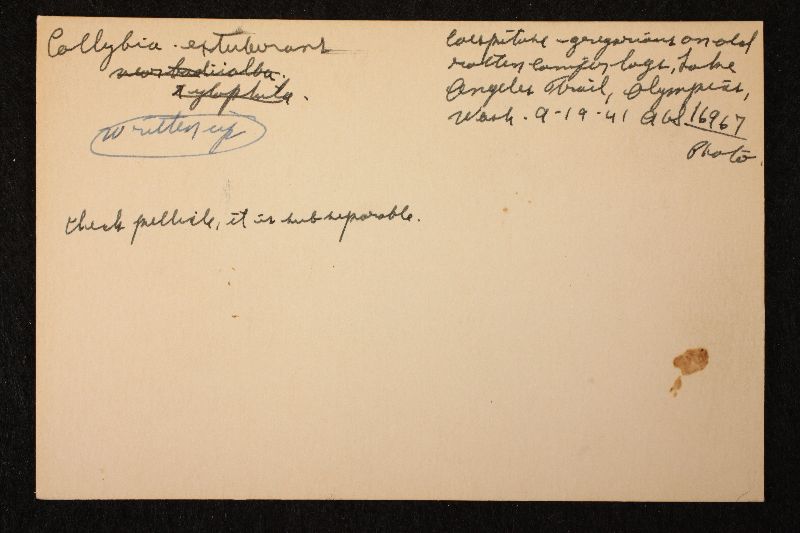 Collybia extuberans
near badiialba.
xylophila.
Written up
check pellicle, it is subseparable.
Caespitose - gregarious on old
rotten conifer logs, Lake
Angeles Trail, Olympics,
Wash. 9-19-41 AHS 16967
Photo.